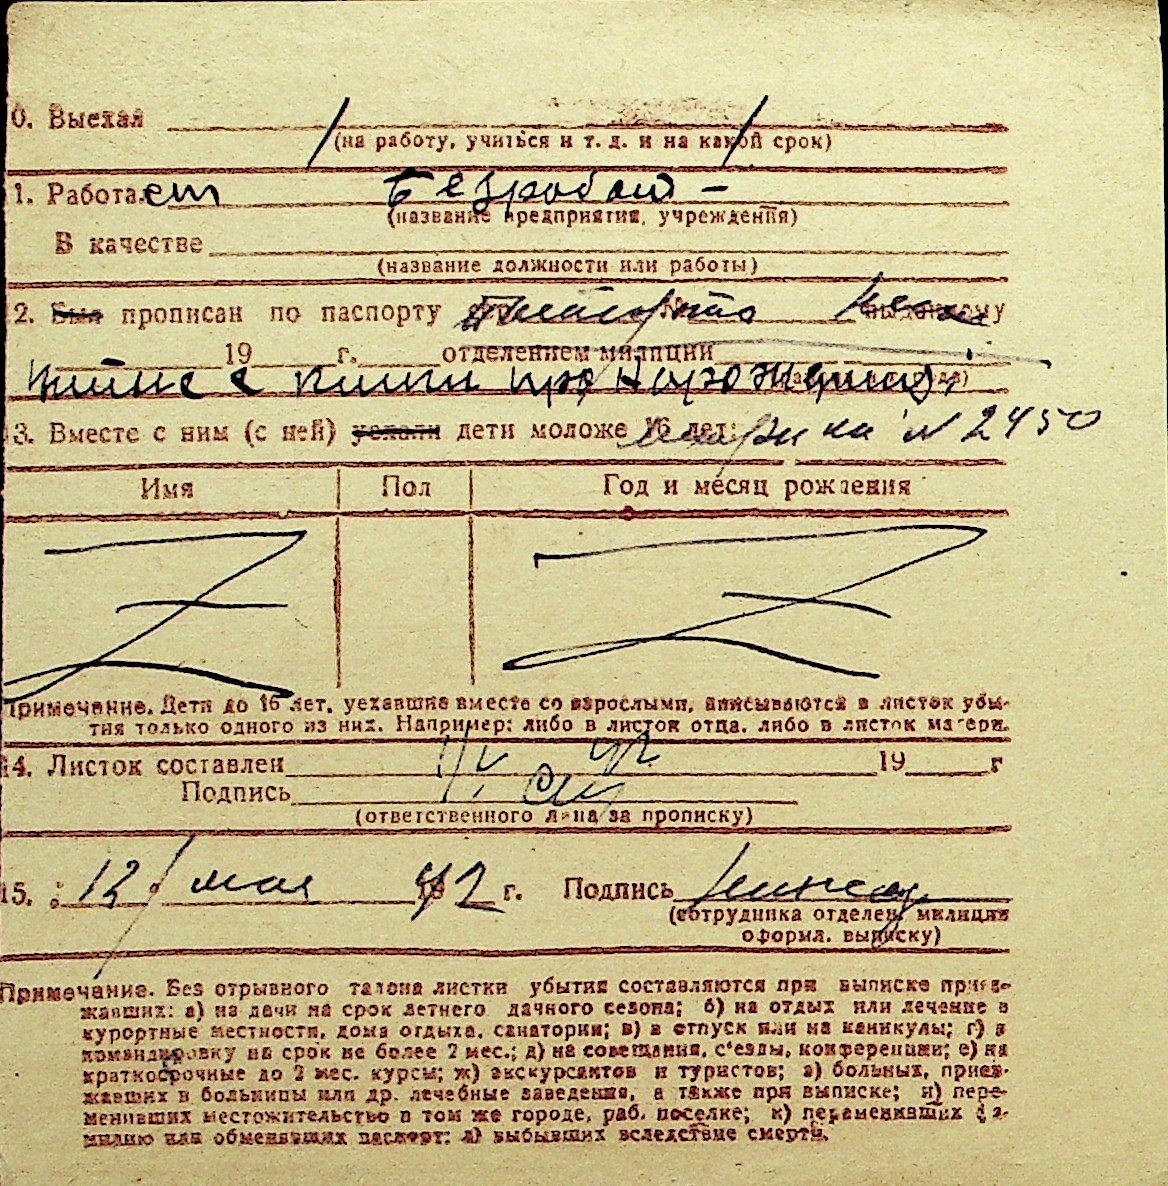 0. Выехал
(на работу, учиться и т. д. и на какой срок)
1. Работает Безработн –
(название предприятия, учреждения)
В качестве
(название должности или работы)
2. Был прописан по паспорту
19 г. отделением милиции
3. Вместе с ним (с ней) уехали дети моложе 16 лет: № 2450
Имя Пол Год и месяц рождения
Примечание. Дети до 16 лет, уехавшие вместе со взрослыми, вписываются в листок убы-
тия только одного из них. Например: либо в листок отца, либо в листок матери.
14. Листок составлен 19 г
Подпись
(ответственного лица за прописку)
15. 12 мая 42 г. Подпись
(сотрудника отделен. милиции
оформл. выписку)
Примечание. Без отрывного талона листки убытия составляются при выписке приез-
жавших: а) на дачи на срок летнего дачного сезона; б) на отдых или лечение в
курортные местности, дома отдыха, санатории; в) в отпуск или на каникулы; г) в
командировку на срок не более 2 мес.; д) на совещания, с'езды, конференции; е) на
краткосрочные до 2 мес. курсы; ж) экскурсантов и туристов; з) больных, приез-
жавших в больницы или др. лечебные заведения, а также при выписке; и) пере-
менивших местожительство в том же городе, раб. поселке; к) переменивших фа-
милию или обменявших паспорт; л) выбывших вследствие смерти.